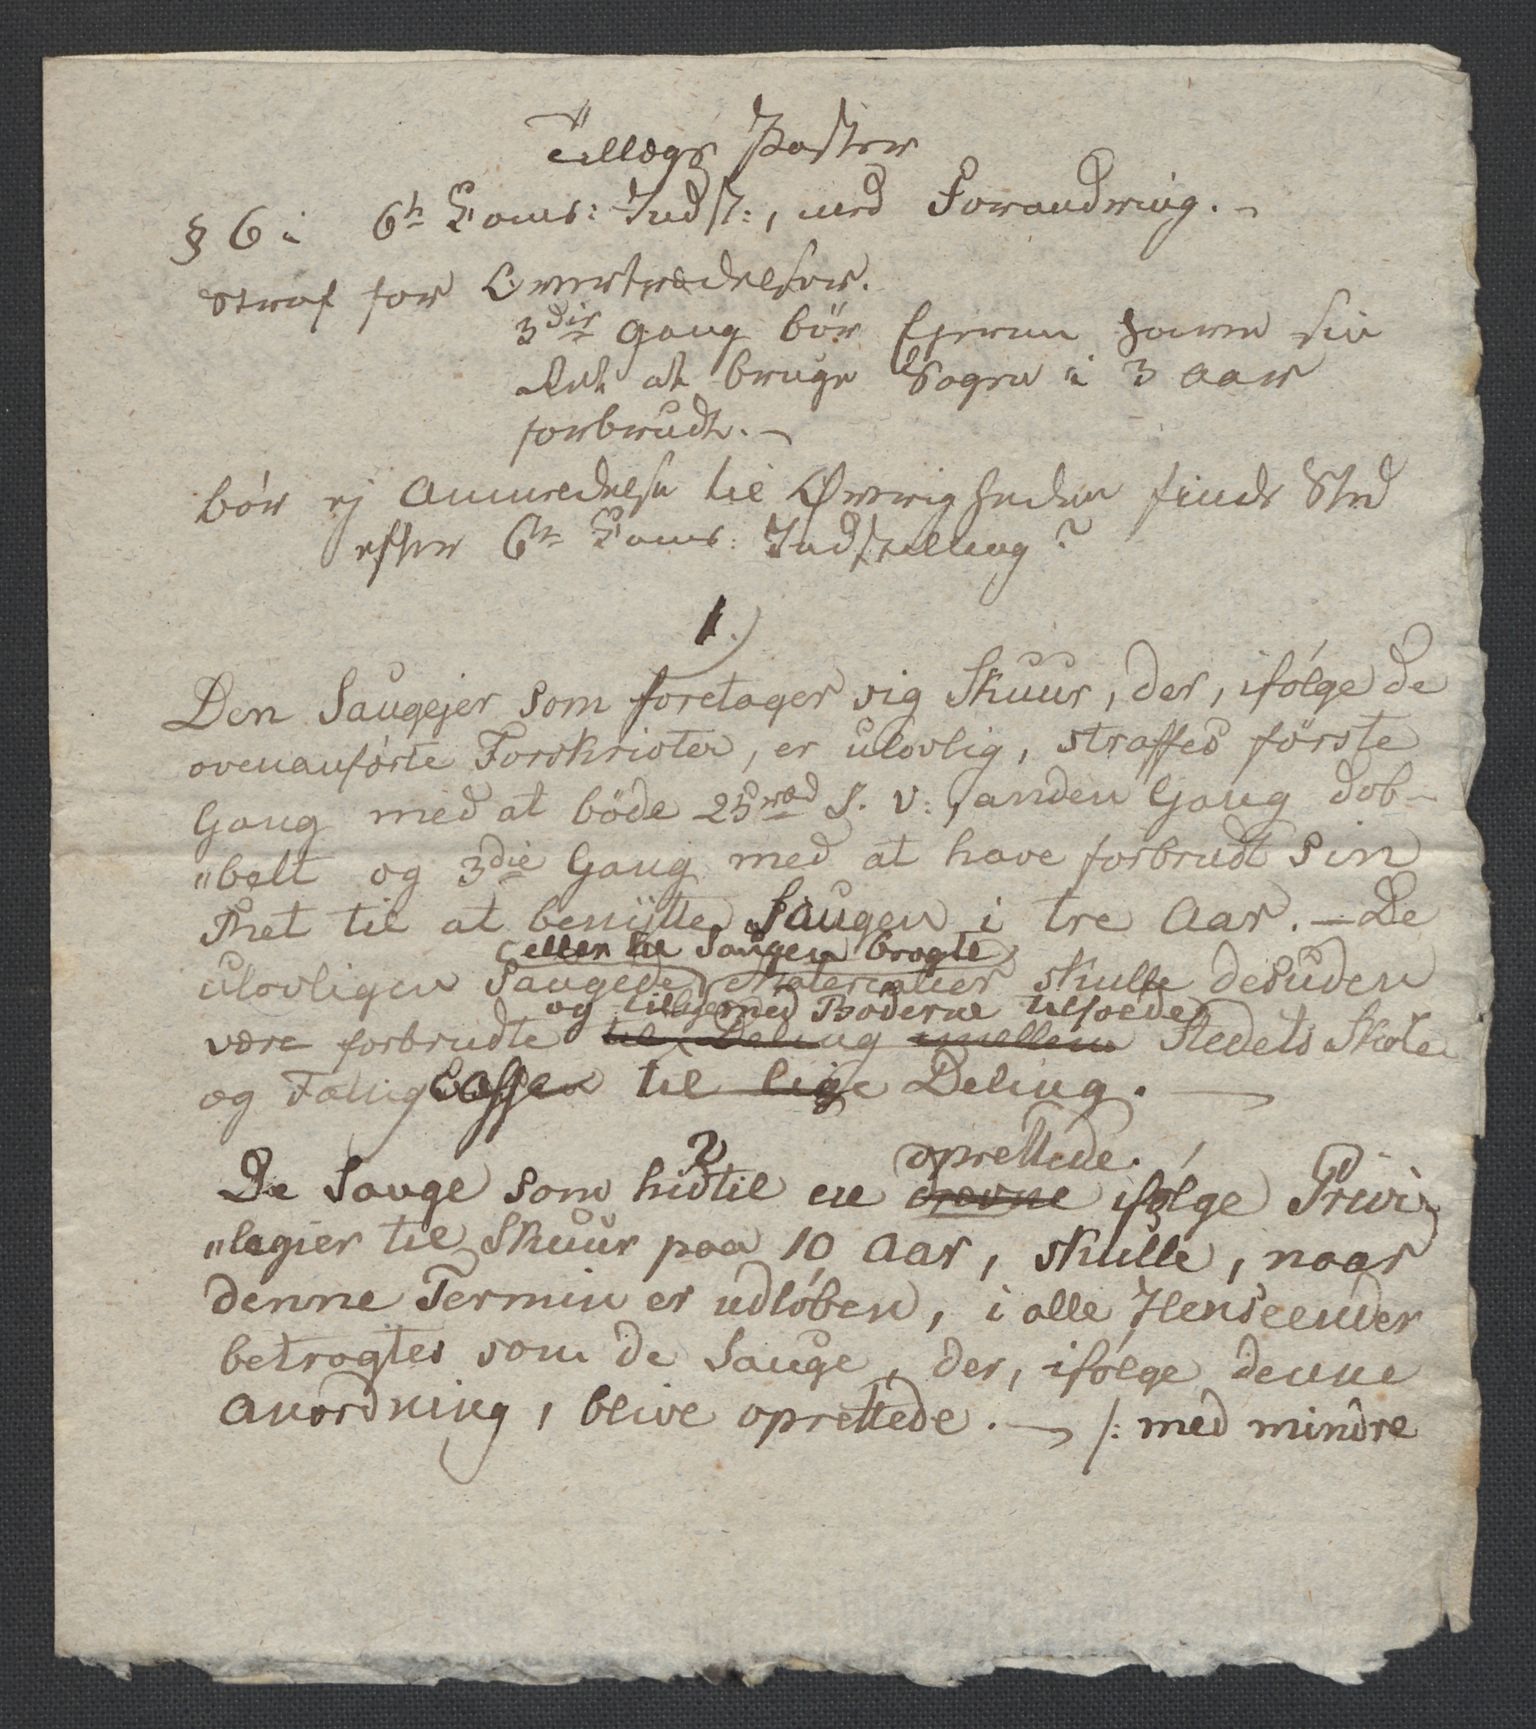 Tillægs Poster
§ 6 i 6te Coms: Indst:, med Forandring. –
Straf for Overtrædelser.
3die Gang bör Ejeren have sin
Ret at bruge Sagen i 3 Aar
forbrudt. –
bör ej Anmeldelse til Øvrigheden finde Sted
efter 6te Coms: Indstilling?
1.)
Den Saugejer som foretager sig Skuur, der, ifölge de
ovenanförte Forskrivter, er ulovlig, straffes förste
Gang med at böde 25 S. V:, anden Gang dob-
"belt og 3die Gang med at have forbrudt sin
Ret til at benÿtte Saugen i tre Aar. – De
eller til Saugen bragte
ulovligen Saugede Materialier skulle desuden
og tilligemed Böderne tilfalde
være forbrudte til Deling imellem Stedets Skole
og Fattig Cassen til lige Deling. –
2
oprettede
De Sauge som hidtil ere drevne ifølge Privi-
"legier til Skuur paa 10 Aar, skulle, naar
denne Termin er udlöben, i alle Henseender
betragtes som de Sauge, der, ifølge denne
Anordning, blive oprettede. – /: med mindre